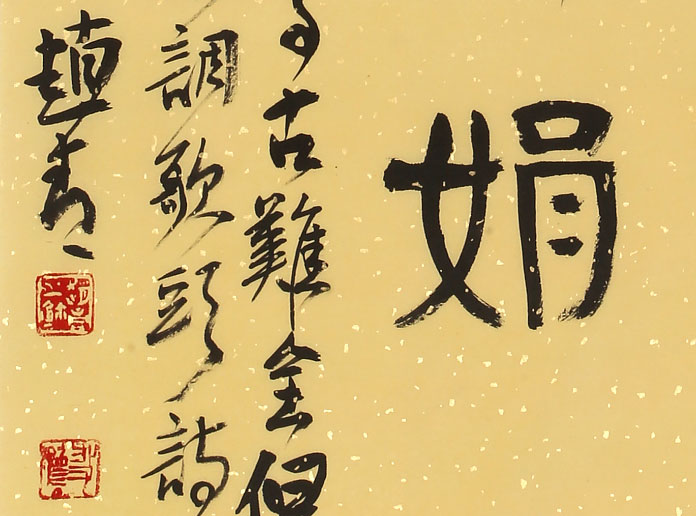 娟
古難全但
調歌頭詩
趙青